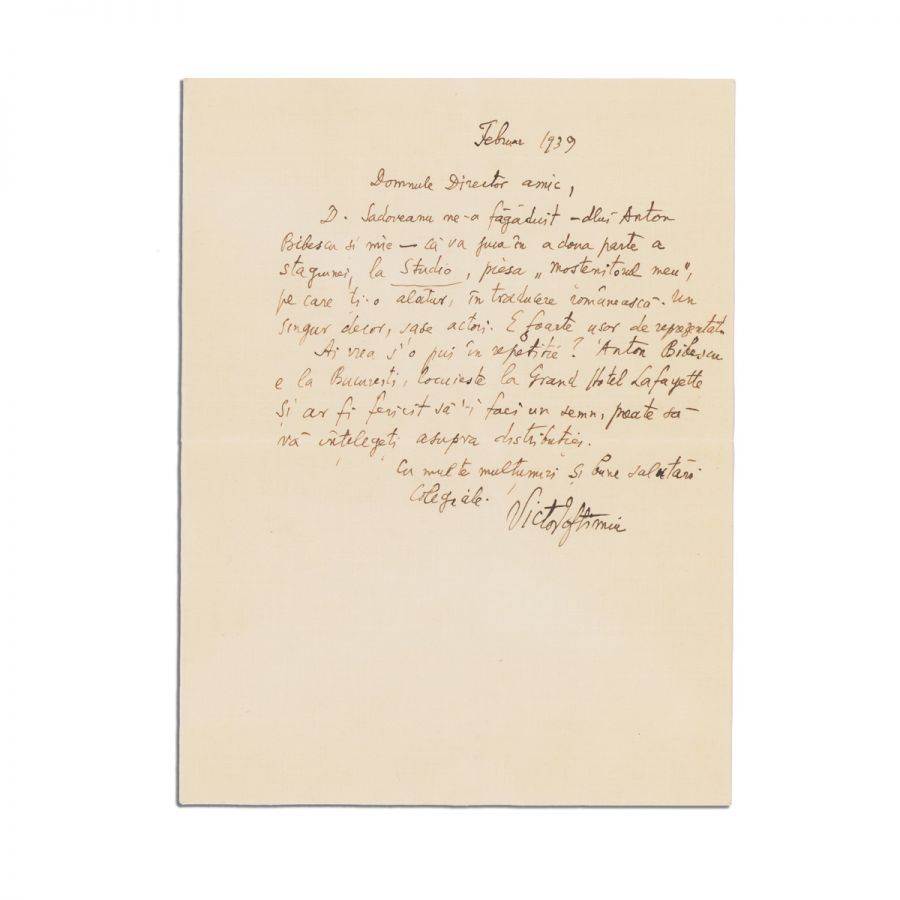 Februar 1939
Domnule Director amic,
D. Sadoveanu ne-a făgăduit – dlui Anton
Bibescu si mie – că va juca în a doua parte a
stagiunei, la Studio, piesa „mostenitorul meu",
pe care ți-o alatur, în traducere românească. Un
singur decor, sase actori. E foarte usor de reprezentat.
Ai vrea s'o pui în repetiție? Anton Bibescu
e la Bucuresti, locuieste la Grand Hotel Lafayette
Și ar fi fericit să-i faci un semn, poate să
vă înțelegeți asupra distribuției.
Cu multe mulțumiri și bune salutări
Colegiale.
Victor Eftimiu